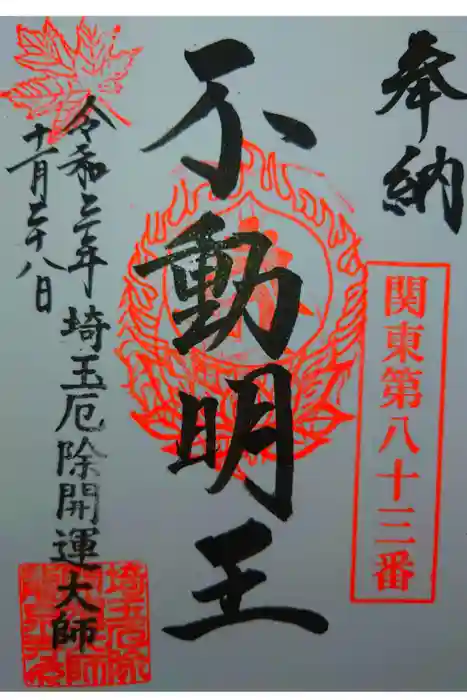 奉納
関東第八十三番
不動明王
令和三年 埼玉厄除開運大師
十一月二十八日